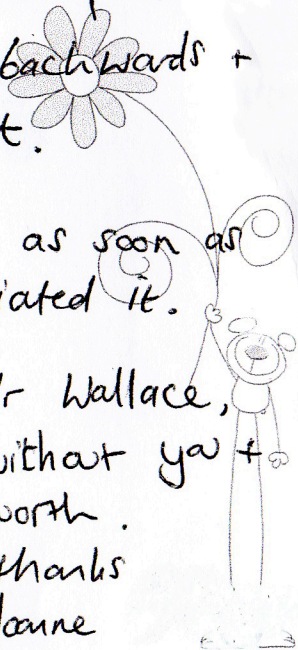 backwards +
t.
as soon as
iated it.
r Wallace,
without ya +
worth.
thanks
oanne